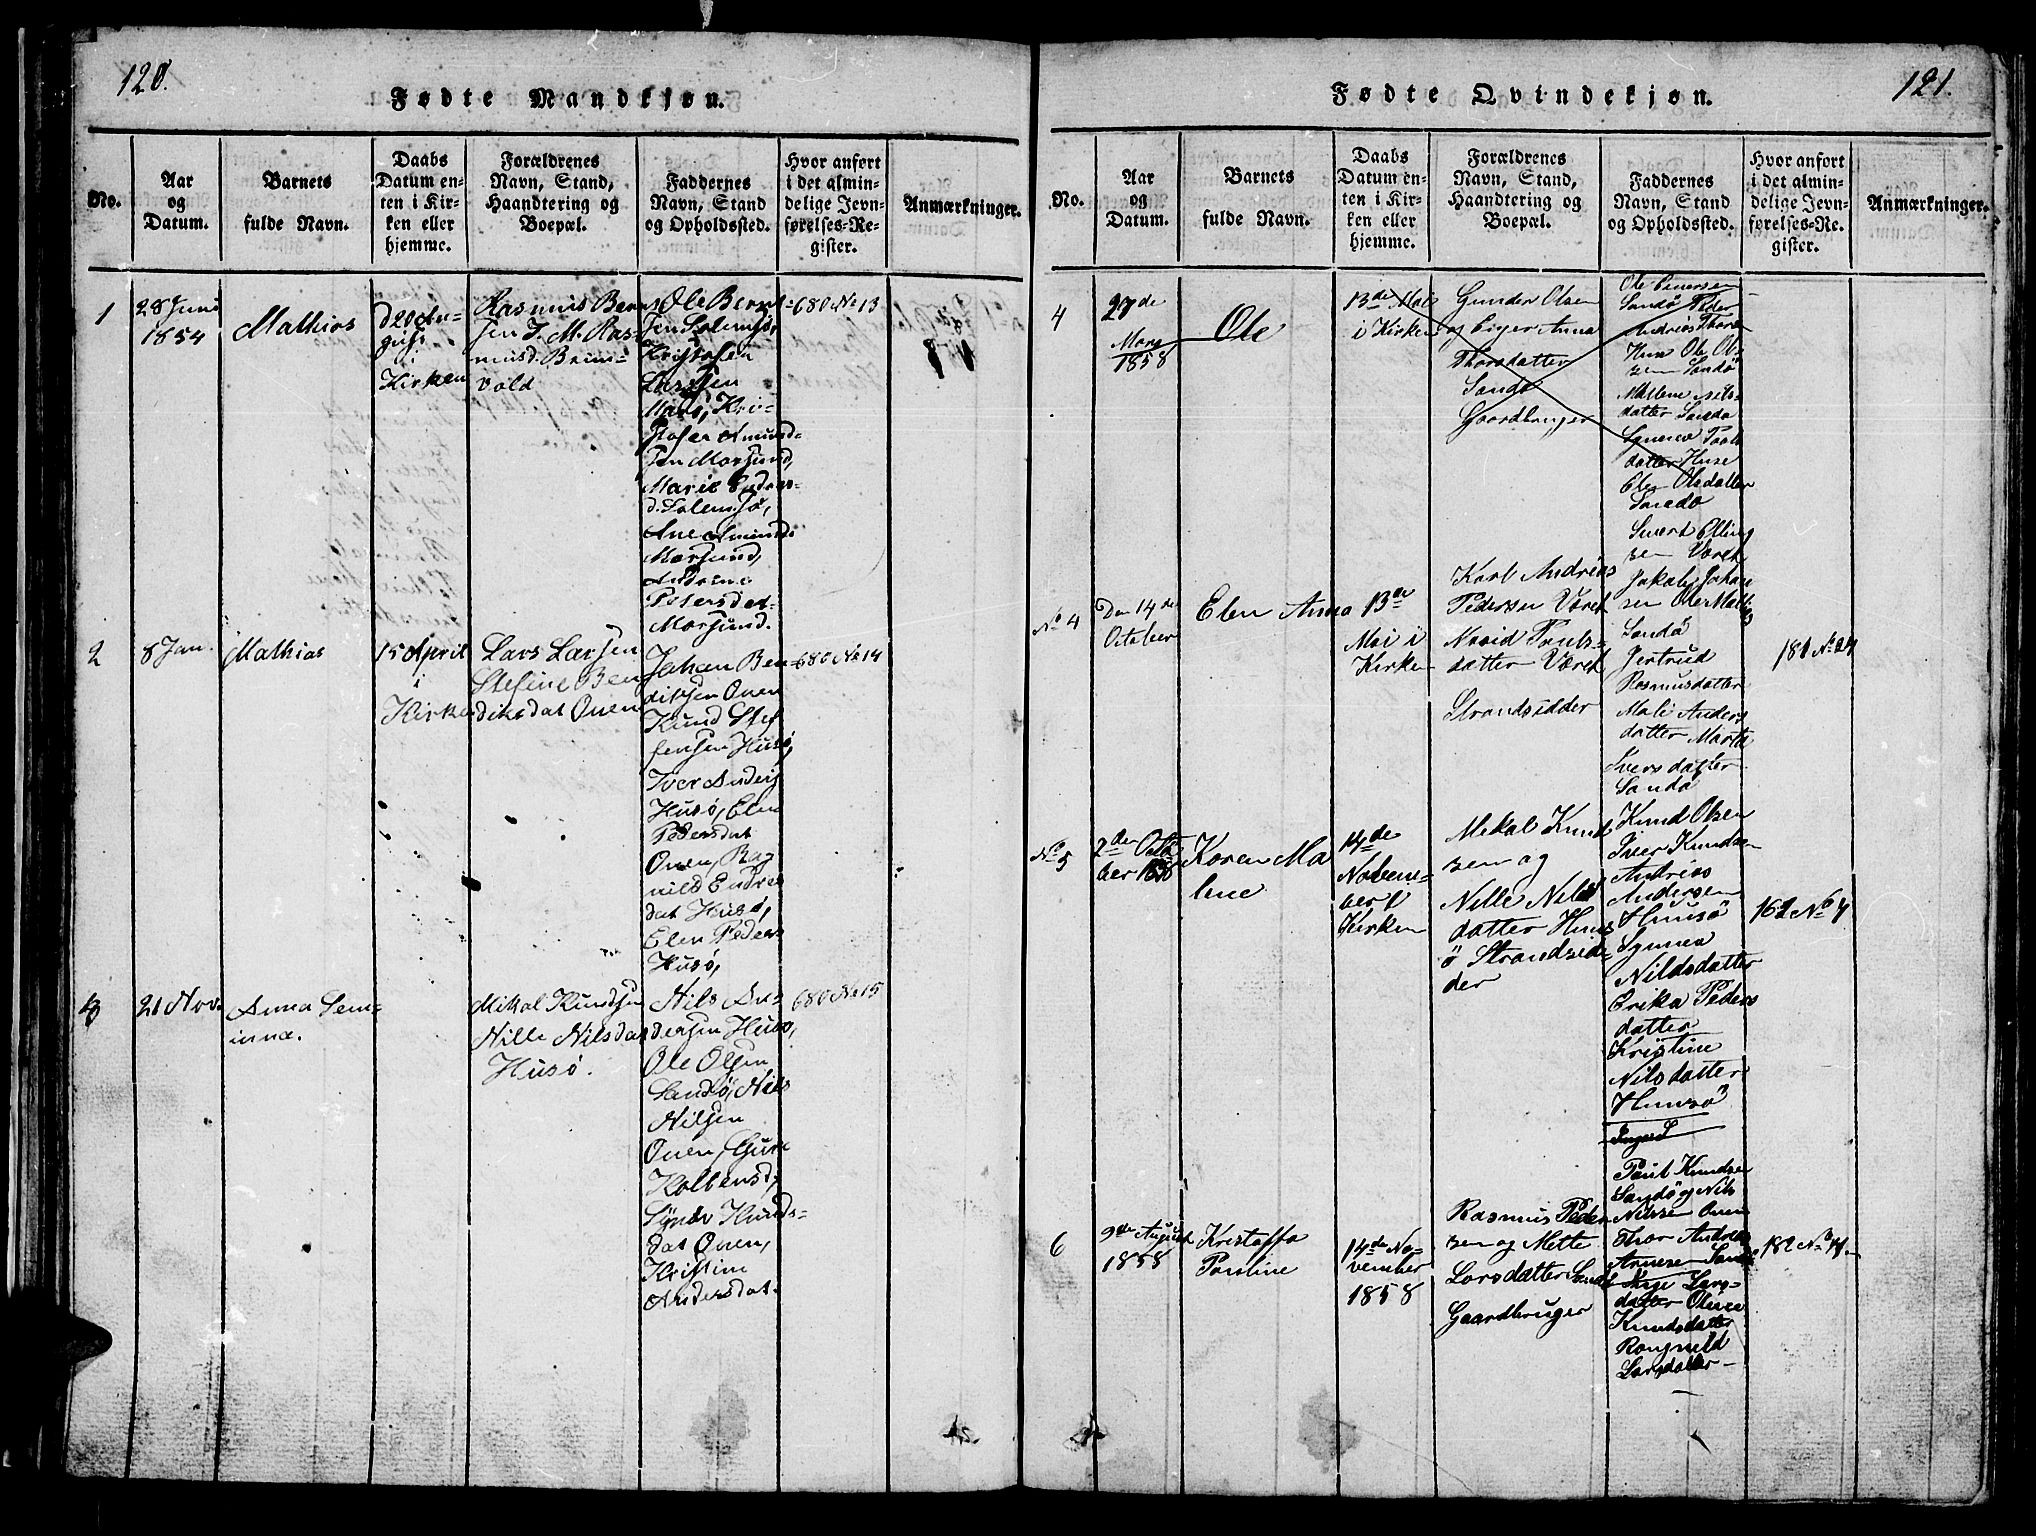 120.
Fødte Mandkjøn.
No.
Aar
og
Datum.
Barnets
fulde Navn.
Daabs
Datum en-
ten i Kir-
ken eller
hjemme.
Forældrenes
Navn, Stand,
Haandtering og
Boepæl.
Faddernes
Navn, Stand
og Opholdssted.
Hvor anført
i det almin-
delige Jevn-
førelses-Re-
gister.
Anmærkninger.
1
28 Juni
1854
Mathias
d 20 Au-
gust
i
Kirken
Rasmus Bernt
sen J. M. Ras-
musd. Brem-
vold
Ole Bernt-
sen Solemsjø,
Kristofen
Larssen
Mars, Kri-
stofer Amund-
sen Morsund,
Marie Endres-
d. Solemsjø,
Ane Amunds
Morsund,
Andrine
Petersdat
Morsund.
680 No 13
2
8 Jan.
Mathias
15 April
i
Kirken
Lars Larsen
Stefine Ben
diksdat Onen
Johan Ben-
diksen Onen
Knud Stef
fensen Husø,
Iver Anders
Husø, Elen
Pedersdat
Onen, Rag
nild Endres
dat Husø,
Elen Peders
Husø,
680 No 14
3
21 Nov.
Anna Sem-
inne.
Mikal Knudsen
Nille Nilsdat
Husø.
Nils An-
dersen Husø,
Ole Olsen
Sandø, Nils
Nilsen
Onen, Guri
Kolbensd,
Synev Knuds-
dat Onen,
Kristine
Andersdat.
680 No 15
121.
Fødte Qvindekjøn.
No.
Aar
og
Datum.
Barnets
fulde Navn.
Daabs
Datum en-
ten i Kir-
ken eller
hjemme.
Forældrenes
Navn, Stand,
Haandtering og
Boepæl.
Faddernes
Navn, Stand
og Opholdssted.
Hvor anført
i det almin-
delige Jevn-
førelses-Re-
gister.
Anmærkninger.
4
27de
Mars
1858
Ole
13de Mai
i Kirken
Gunder Olsen
og Anna
Thorsdatter
Sandø
Gaardbruger
Ole
Sandø Peder
Andreas Thore
Huse Ole Ol-
sen Sandø
Malene Nils-
datter Sandø
Synneva Pouls
datter Huse
Elen Olsdatter
Sandø
No 4
Den 14de
October
Elen Anna
13de
Mai i
Kirken
Karl Andreas
Pedersen Været
Troels-
datter Været
Strandsidder
Sivert Elling
sen Været
Jakob Johan
sen Ole
Sandø
Gertrud
Rasmusdatter
Mali Anders
datter Marta
Ivers datter
Sandø
181 No 24
No 5
2den Octo
ber 1858
Karen Ma
lene
14de
Novem-
ber i
Kirken
Mekal Knud
sen og
Nille Nils
datter Huus
ö Strandsid-
der
Knud Olsen
Iver Knudsen
Andrias
Andersen
Huusö
Synneva
Nilsdatter
Erika Peders
datter
Kristine
Nilsdatter
Huusö
Ingred
162 No 7
6
9de August
1858
Kristoffa
Pauline
14de No-
vember
1858
Rasmus Peder
sen og Mette
Larsdatter Sandø
Gaardbruger
Poul Knudsen
Sandø og Nils
Nilsen Onen
Thor Andreas
Arnesen Sandø
Lars-
datter Oline
Knudsdatter
Rangnild
Larsdatter
182 No